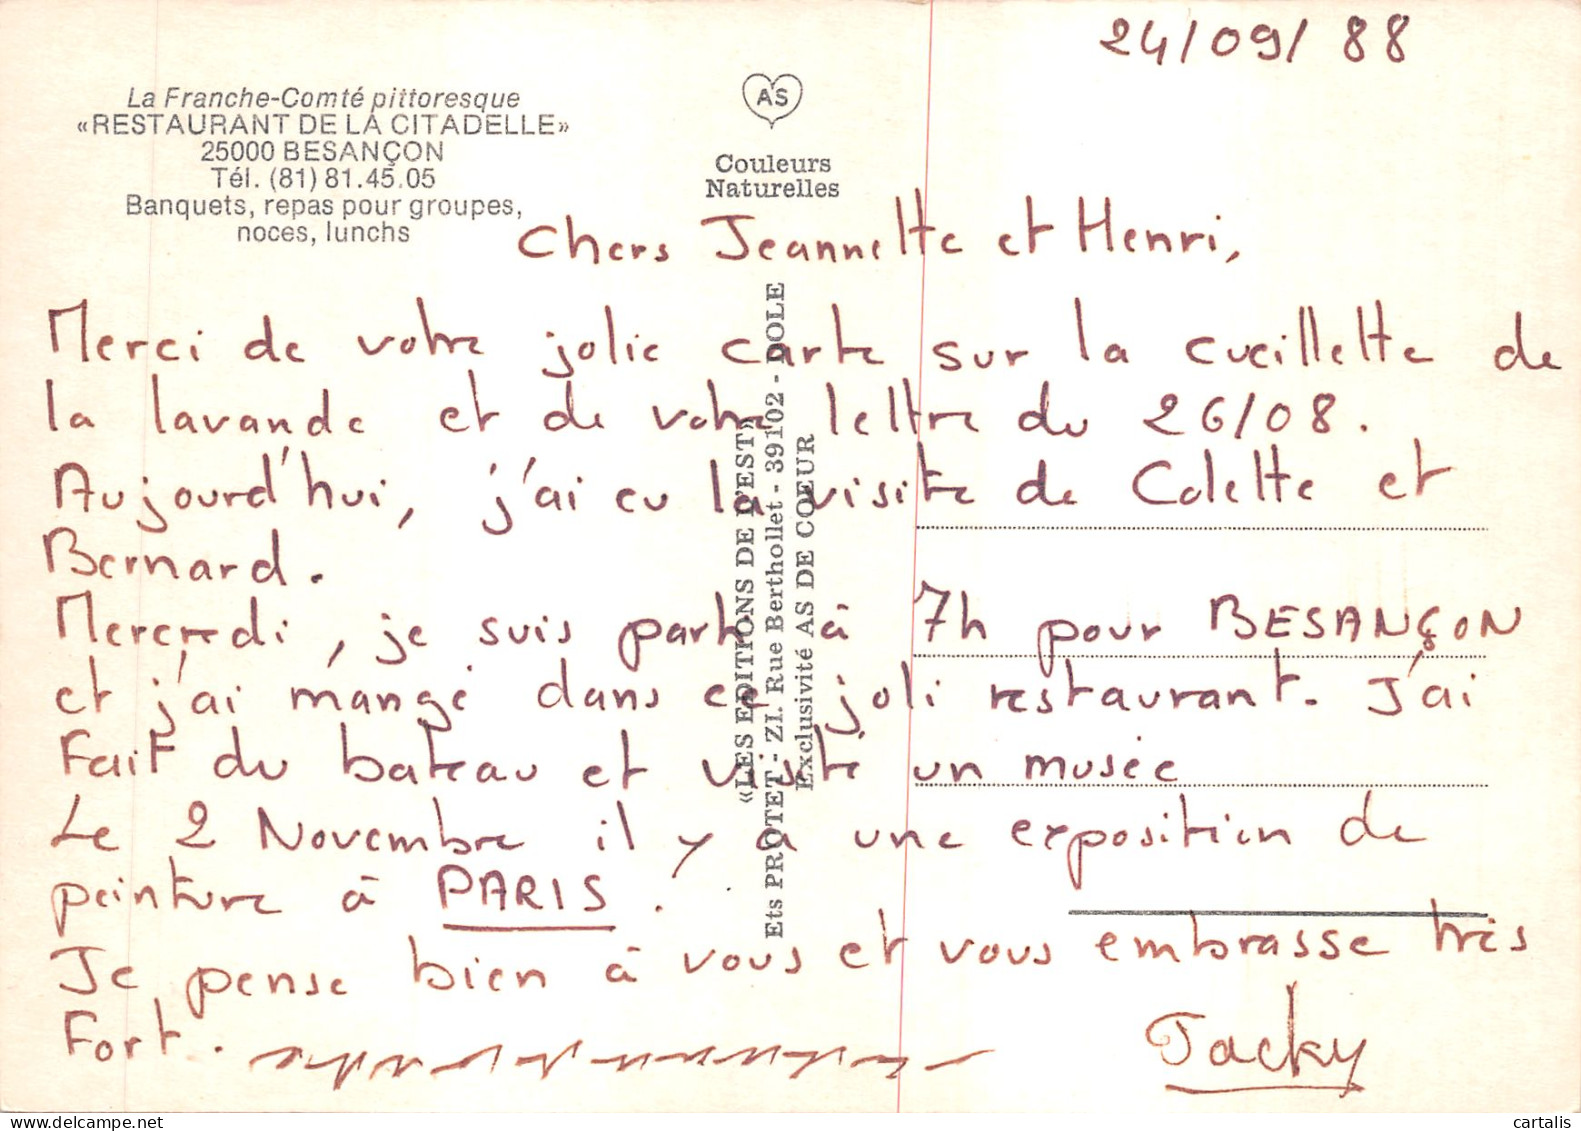 24/09/88
La Franche-Comté pittoresque
«RESTAURANT DE LA CITADELLE»
25000 BESANÇON
Tél. (81) 81.45.05
Banquets, repas pour groupes,
noces, lunchs
AS
Couleurs
Naturelles
«LES EDITIONS DE L'EST»
Ets PROTET - ZI. Rue Berthollet - 39102 - DOLE
Exclusivité AS DE COEUR
Chers Jeannette et Henri,
Merci de votre jolie carte sur la cueillette de
la lavande et de votre lettre du 26/08.
Aujourd'hui, j'ai eu la visite de Colette et
Bernard.
Mercredi, je suis parti à 7h pour BESANÇON
et j'ai mangé dans ce joli restaurant. J'ai
Fait du bateau et visité un musée
Le 2 Novembre il y a une exposition de
peinture à PARIS.
Je pense bien à vous et vous embrasse très
Fort.
Jacky
cartalis